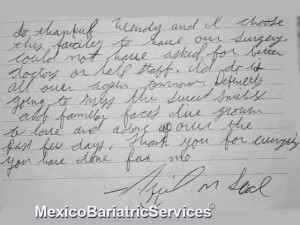 So thankful Wendy and I choose
this facility to have our surgery.
Could not have asked for better
doctors or help staff. I'd do it
all over again tomorrow. Definetly
going to miss the sweet smiles
and familiar faces I've grown
to love and adore over the
past few days. Thank you for everything
you have done for me
M Seal
MexicoBariatricServices